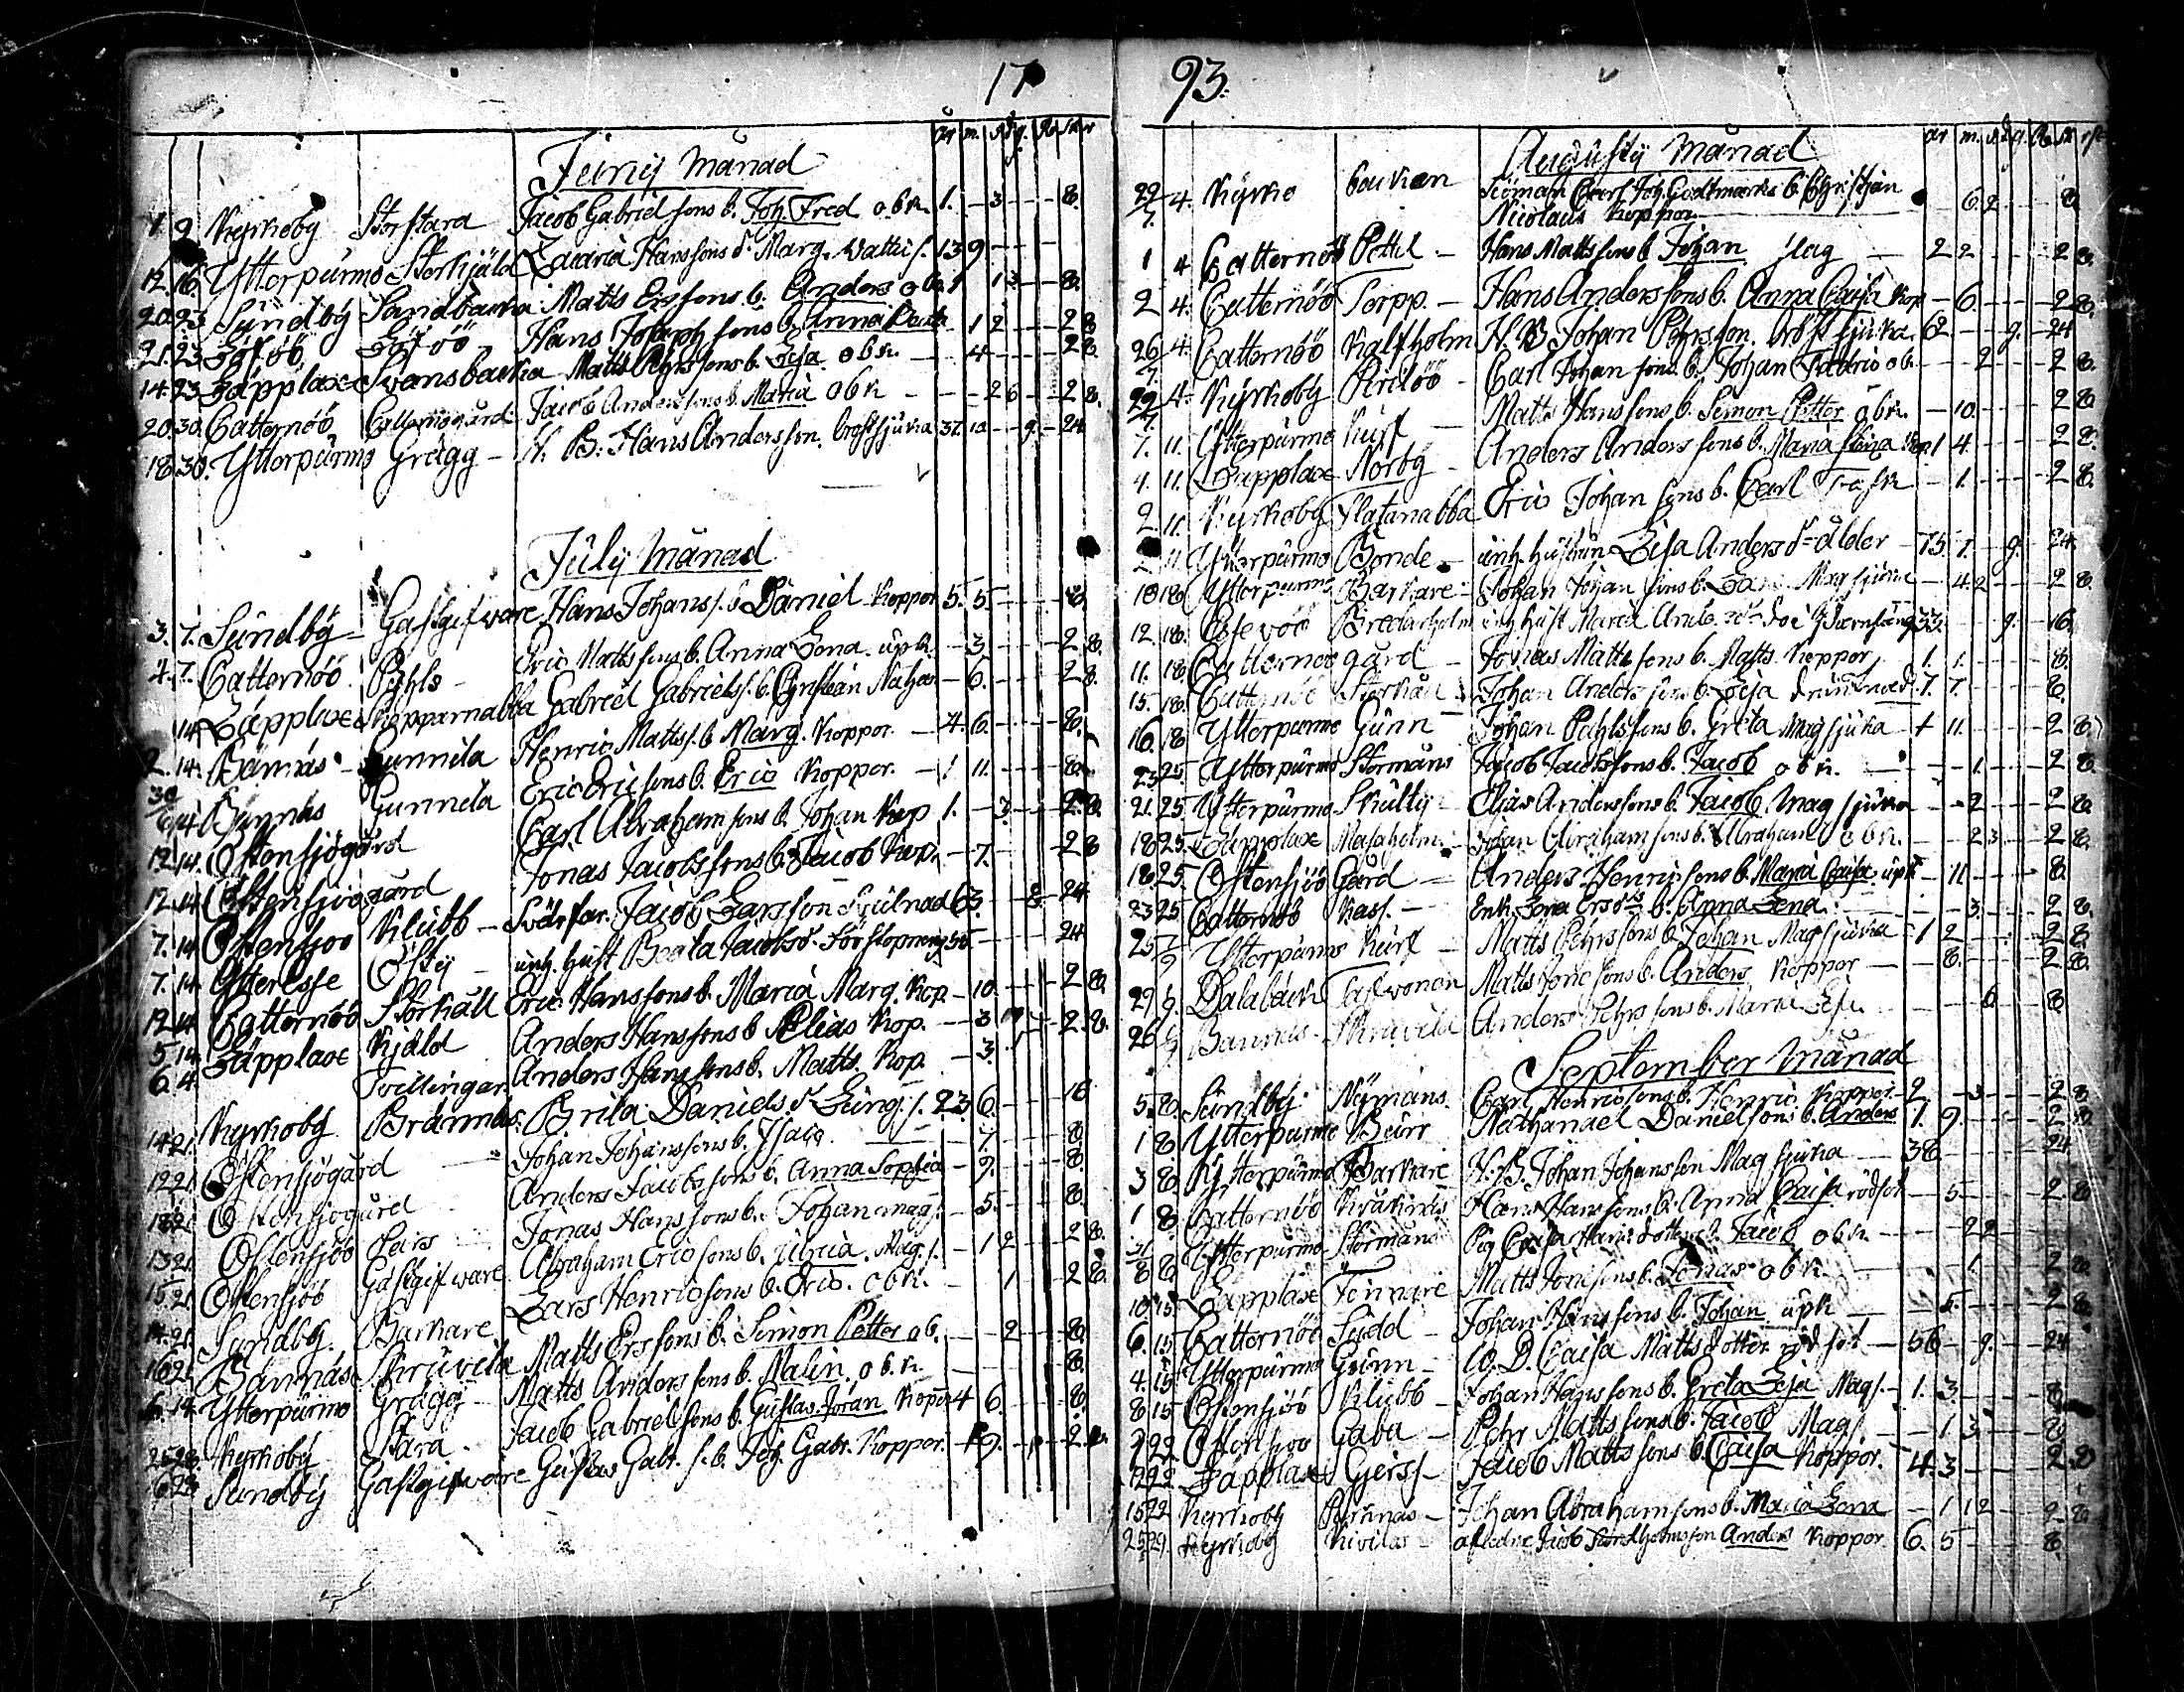 17
år m. d g. R sk r
Junij Månad
1 9 Kyrkoby Storstara Jacob Gabrielsons b. Joh. Fred obk. 1. 3 8.
12. 16. Ytterpurmo Storkjäld Zacaria Hanssons dr Marg. Vattus. 13 9
20. 23 Sundby Sandbacka Matts Erssons b. Anders obk. 1 13 8.
21. 23 Löföö Löföö Hans Josephsons b. Anna 1 2 2 8
14. 23 Läpplax Svansbacka Matts Pehrssons b. Lisa. obk. 4. 2 8.
20. 30. Catternöö Catternögård Jacob Anderssons b. Maria obk 26 2 8.
18. 30. Ytterpurmo Grägg N. B. Hans Andersson. bröstsjuka 37. 10 g. 24.
July Månad
3. 7. Sundby Gästgifware Hans Johans s. b Daniel Koppor 5. 5. 8.
4. 7. Catternöö Pehls Eric Mattssons b. Anna Lena upk. 3. 2 8.
14 Läpplax Kopparnabba Gabriel Gabriels s. b. Christian 6. 2 8.
2. 14. Bännäs Gunnila Henric Matts s. b Marg. Koppor. 4. 6. 8.
30/6 14 Bännäs Gunnila Eric Ericsons b. Eric Koppor. 1 11. 8.
12. 14. Östensjögård Carl Abrahamsons b. Johan Kop 1. 3. 2 8.
12. 14 Östensjögård Jonas Jacobssons b. Jacob Kop. 7. 2 8
7. 14 Östensjöö Klubb Jacob Larsson 63. 24
7. 14. Ytteresse Östy inh. hust Beata Jacobsdr. förstopning 50 24
12 14 Catternöö Storkåll Eric Hanssons b. Maria Marg. Kop. 10. 2 8.
5 14. Läpplax Kjäld Anders Hanssons b Elias Kop. 3 2. 8.
6. 4. Twillingar Anders Hanssons b. Matts Kop. 3.
14 21. Kyrkoby Brännbs. Brita Danielsdr Lungs. 23 6. 16
12 21. Östensjögård Johan Johanssons b. Isaac 7. 8
18 21. Östensjögård Anders Jacobssons b. Anna Sophia 9. 8.
13 21. Östensjöö Pers Jonas Hanssons b. Johan mags. 5. 8.
15 21. Östensjöö Gästgifware Abraham Ericsons b. Ulrica. Mags. 1 2 2 8.
14. 21. Sundby. Barkare Lars Henricsons b. Eric. obk. 1 2 8.
16 21. Bännäs Skruvila Matts Erssons b. Simon Petter ob. 2 8.
6. 14. Ytterpurmo Grägg Matts Anderssons b. Malin. obk. 8.
25 28. Kyrkoby Stara Jacob Gabrielsons b. Gustas Jöran Koppor 4 6. 8.
6 28. Sundby Gästgifware Gustav Gabr. s. b. Joh. Gabr. Koppor. 9. 2.
93.
år m. d g. R sk rst
Augusty Månad
29/7. 4. Kyrko backan Sjöman Carl Joh. Godtmarks b. Christjan
Nicolaus Koppor. 6. 2 8
1 4 Catternöö Pettil Hans Mattssons b. Johan Slag 2 2 2 8.
2 4. Catternöö Torpp. Hans Anderssons b. Anna Caisa Kop. 6. 2 8.
26/7. 4. Catternöö Kalfholm N. B Johan Pehrsson. bröstsjuka. 62 g. 24
29/7. 4. Kyrkoby Pirilöö Carl Johansons b. Johan Fredric ob. 2 2 8.
7. 11. Ytterpurmo Kurf Matts Hanssons b. Simon Petter obk. 10. 2 8.
4. 11. Läpplax Norby Anders Anderssons b. Maria Stina Kop. 1 4. 2 8.
2. 11. Kyrkoby Platanabba Eric Johansons b. Carl Trask 1. 2 8.
2. 11 Ytterpurmo Bonde inh. hustrun Lisa Andersdr ålder 75. 1. g. 24
10 18. Ytterpurmo Barkare Johan Johansons b. Magsjuka 4 2 2 8.
12. 18. Bredarholm inh. hust Maria 33. g. 16.
11. 18 Catternöö gård Jonas Mattssons b. Matts Koppor. 1. 1. 8.
15. 18. Catternöö Storkåll Johan Anderssons b. Lisa drunknad 7. 7. 8.
16. 18 Ytterpurmo Gunn Johan Pehlssons b. Greta Magsjuka 11. 2 8.
23 25 Ytterpurmo Stormans Jacob Jacobssons b. Jacob obk. 1. 2 8.
21. 25. Ytterpurmo Skulty Elias Anderssons b. Jacob. Magsjuka 2 2 8.
18 25. Läpplax Masaholm. Johan Abrahamsons b. Abraham obk. 23 2 8.
18 25. Östensjöö Gård Anders Henricsons b. Maria Caisa upk 11 8.
23 25 Catternöö Kass. Enk. Lena Ersdrs b. Anna Lena. 3. 2 8.
25 1/9 Ytterpurmo Kurf Matts Pehrssons b. Johan Magsjuka 1 2 2 8.
29 1/9. Dalabäck Matts Jonssons b. Anders Koppor 8. 2 8.
26 1/9 Bännäs Skruvila Anders Pehrssons b. Maria Lisa 6 8
September Månad
5. 8. Sundby Nymans. Carl Henricsons b. Henric Koppor. 2. 3 2 8
1 8 Ytterpurmo Burr Nathanael Danielsons b. Anders 1. 9. 2 8
3 8. Ytterpurmo Barkare N. B. Johan Johansson Magsjuka 38 24
1 8 Catternöö Hans Hanssons b. Anna Caisa rödsot 5 2 8
31/8 8. Ytterpurmo Stormans Pig Caisa Hansdotters b. Jacob obk. 2 2
10 15 Läpplax Fennäre Matts Jonssons b. Jonas obk 1. 2 8
6. 15 Catternöö Sudd Johan Hanssons b. Johan upk 5. 2 8.
4. 15. Ytterpurmo Gunn W. D. Caisa Mattsdotter rödsot 56 g. 24
8 15 Östensjöö Klubb Johan Hanssons b. Greta Lisa Mags. 1. 3. 8
22 Östensjöö Gaba Pehr Mattssons b. Jacob Mags. 1 3. 8
22. Läpplax Gerss Jacob Mattssons b. Caisa Koppor. 4. 3 2 8
15 22 Kyrkoby Johan Abrahamsons b. Maria Lena 1 12 2 8
25 29. Kyrkoby Kivilös afledne Jacob son Anders Koppor 6. 5 8.